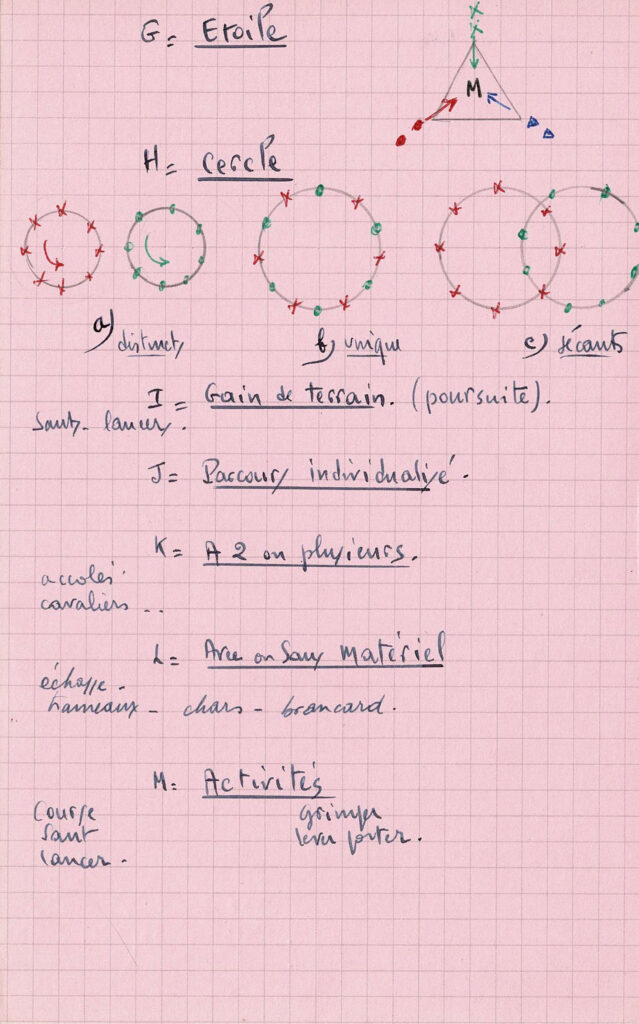 G = Etoile
M
H = Cercle
a) distincts
b) unique
c) sécants
I = Gain de terrain. (poursuite).
Sauts - lancers.
J = Parcours individualisé.
K = A 2 ou plusieurs.
accolés
cavaliers ..
L = Avec ou Sans matériel
échasse -
traineaux - chars - brancard.
M = Activités
Course
grimper
Saut
lever porter.
lancer.